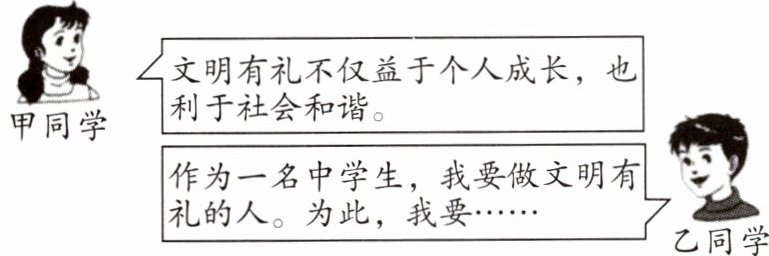 文明有礼不仅益于个人成长，也
利于社会和谐。
甲同学
作为一名中学生，我要做文明有
礼的人。为此，我要……
乙同学